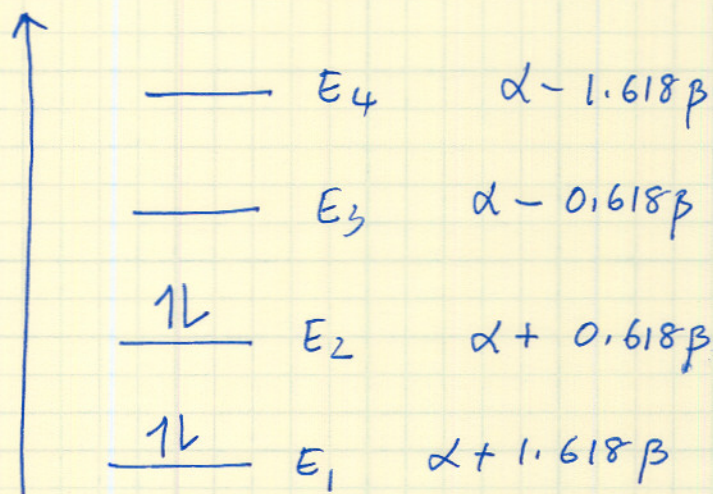 E4 α - 1.618β
E3 α - 0.618β
⥮ E2 α + 0.618β
⥮ E1 α + 1.618β